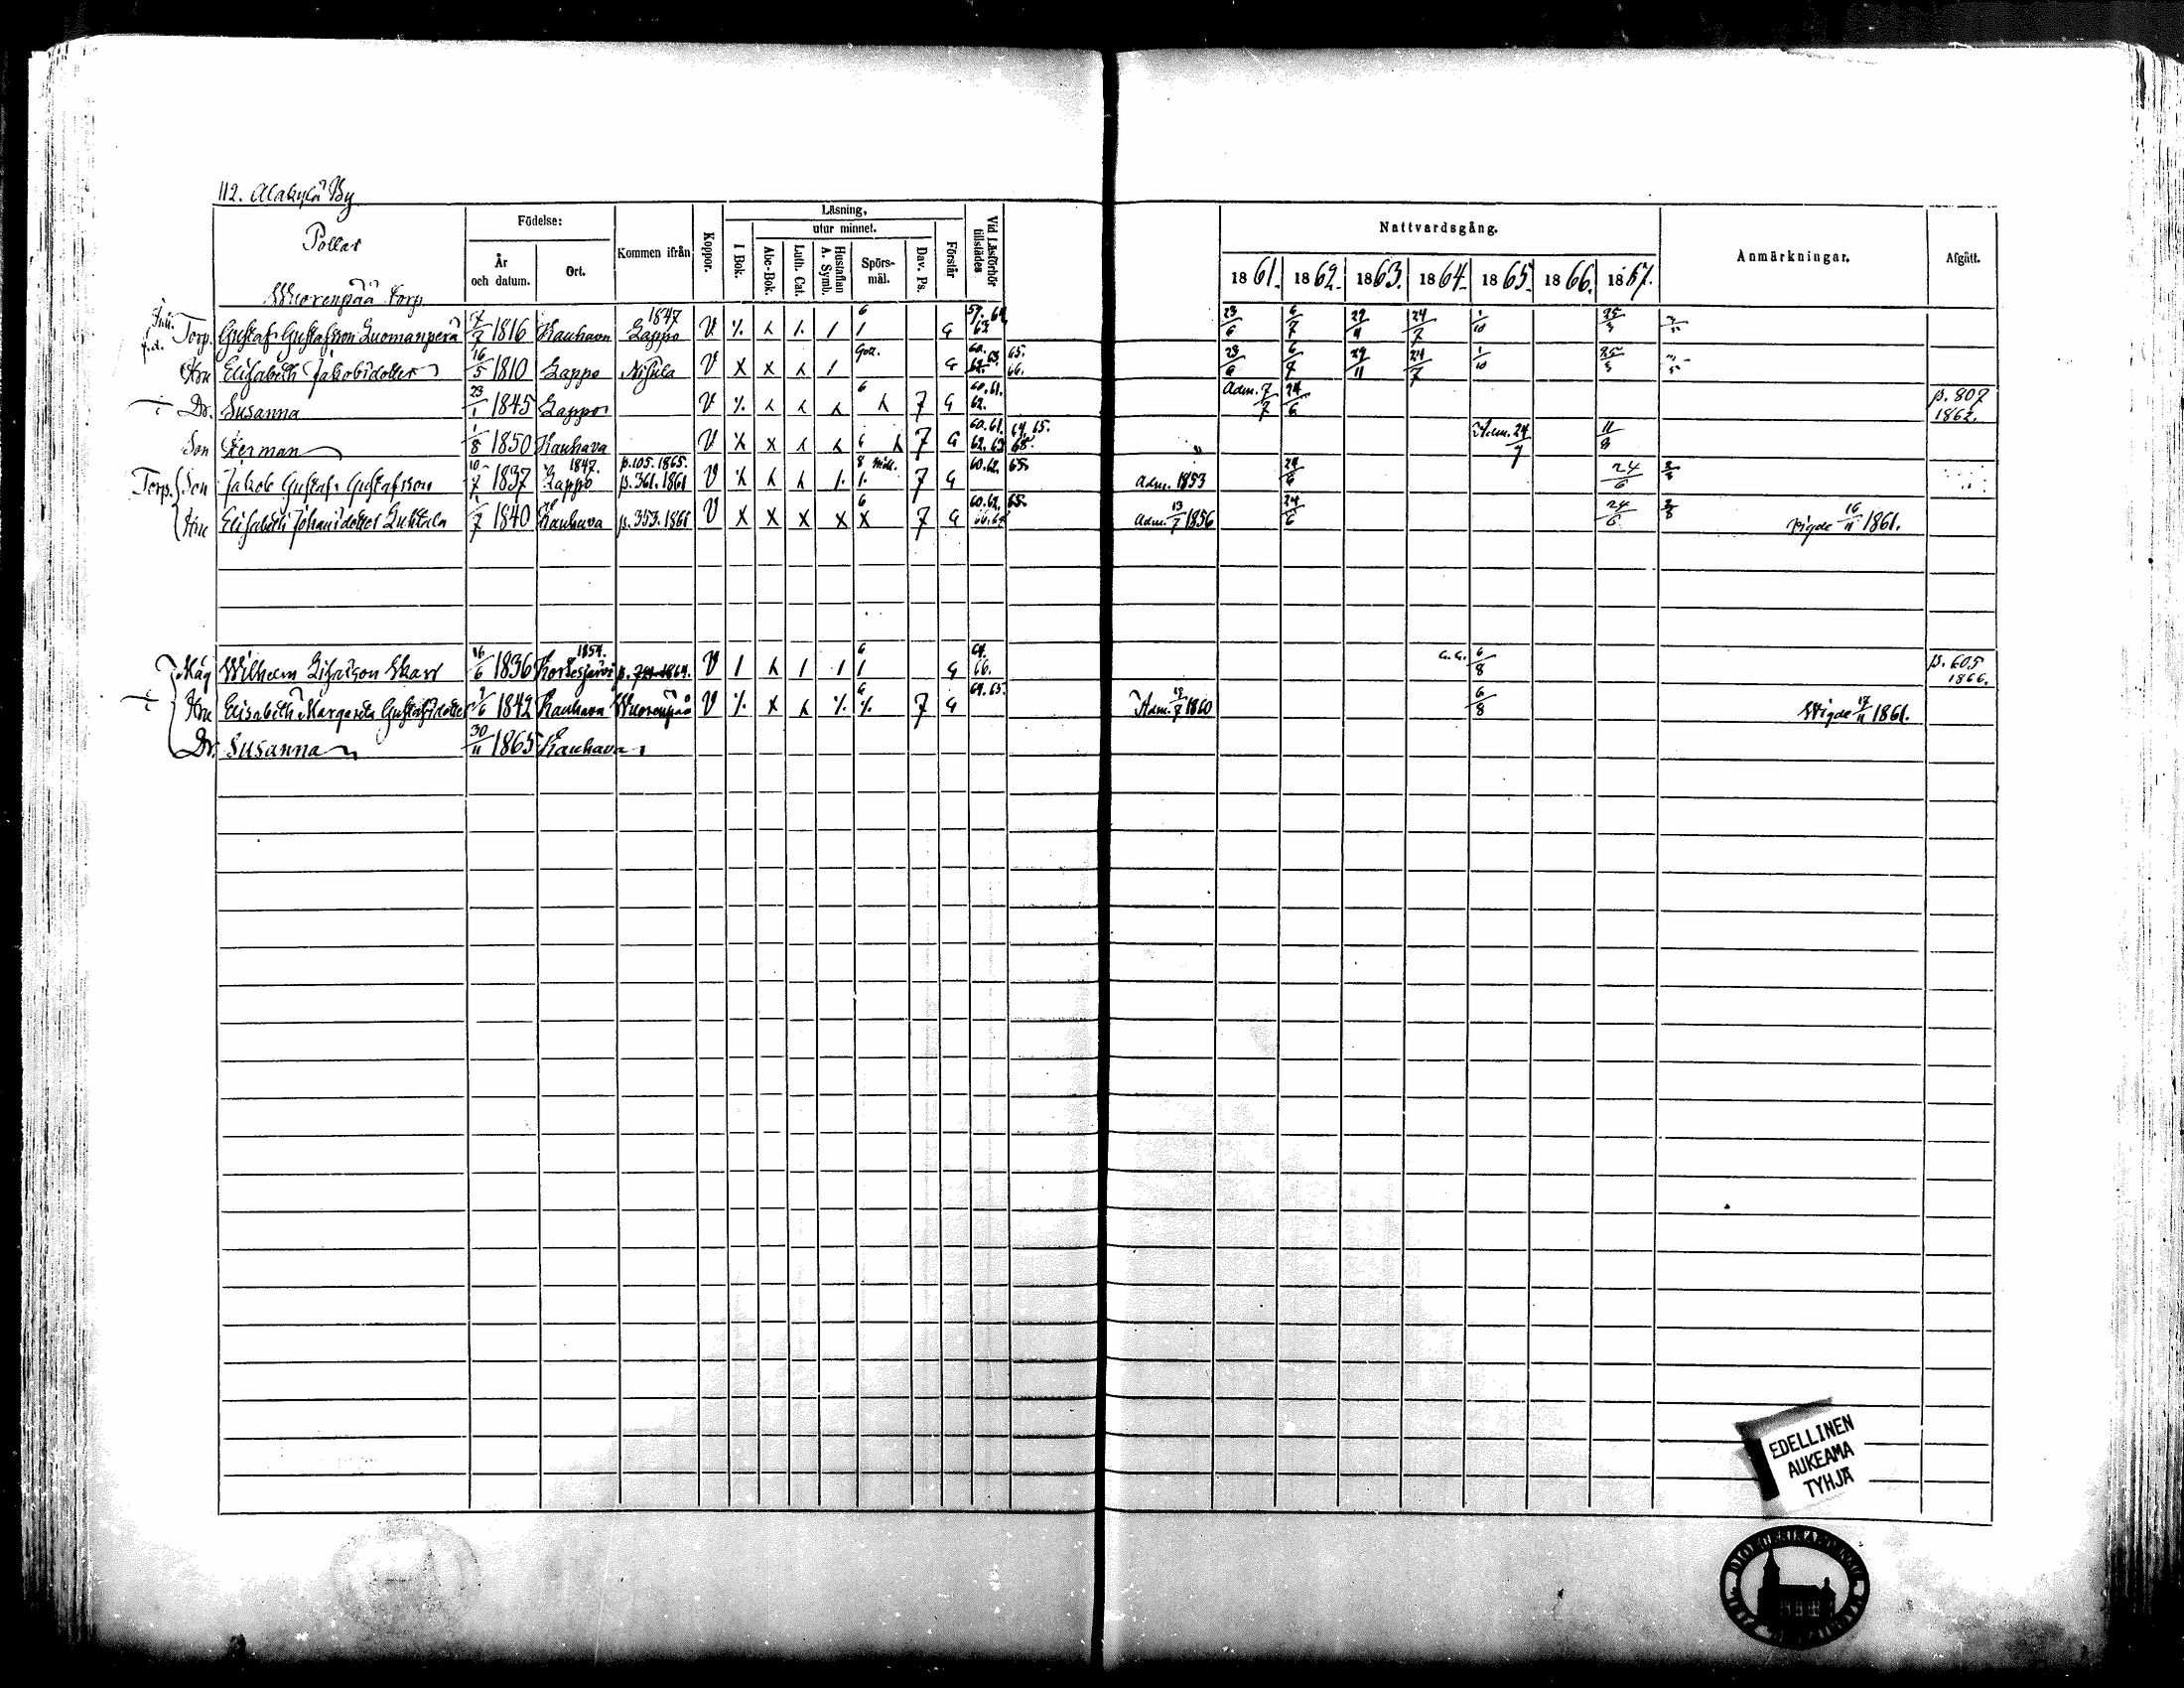 112. Alakylä By
Pollar
Födelse:
År och datum.
Ort.
Kommen ifrån
Koppor.
Läsning,
I Bok.
utur minnet.
Abc-Bok.
Luth. Cat.
Hustaflan A. Symb.
Spörsmål.
Dav. Ps.
Förstår
Vid Läsförhör tillstädes
Nattvardsgång.
1861. 1862. 1863. 1864. 1865. 1866. 1867.
Anmärkningar.
Afgått.
Wuorenpää torp
Torp. Gustaf Gustafsson Luomanperä 7/7 1816 Kauhava 1847 Lappo V G 23/6 6/7 29/11 24/7 1/10 25/3
Hru Elisabeth Jakobsdotter 16/5 1810 Lappo Nisula V x x G 65. 66. 23/6 6/7 29/11 24/7 1/10 25/3
Dr. Susanna 23/1 1845 Lappo V 6 7 G 60.61. 62. Adm. 7/7 24/6 p. 807 1862.
Son Herman 1/8 1850 Kauhava V x 6 7 G 60.61. 62.63 64.65. Adm. 24/7 11/8
Torp. Son Jakob Gustaf Gustafsson 10/7 1837 1847. Lappo p.105.1865. p.361.1861 V 8 7 G 60.62. 65. Adm. 1853 24/6 24/6
Hru Elisabeth Johansdotter Luhtala 1/7 1840 Kauhava p.353.1861 V x x x x x 6 7 G 60.62. 65. Adm. 13/7 1856 24/6 24/6 Vigde 16/11 1861.
Måg Wilhelm 16/6 1836 1854. Kortesjärvi V 6 G 64. 66. 6/8 p. 605 1866.
Hru Elisabeth Margareta Gustafsdotter 1842 Kauhava Wuorenpää V x 6 7 G 64.65. Adm. 1860 6/8 Wigde 17/11 1861.
Dr. Susanna 30/11 1865 Kauhava
EDELLINEN
AUKEAMA
TYHJÄ